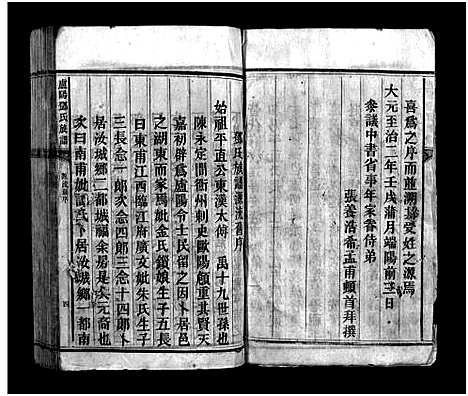 喜爲之序而並溯其受姓之源焉
大元至治二年壬戌蒲月端陽前三日
參議中書省事年家眷侍弟
張養浩希孟甫頓首拜撰
鄧氏族譜源流舊序
始祖平直公東漢太傅 禹十九世孫也
陳永定間衡州刺史歐陽頠重其賢天
嘉初辟爲廬陽令士民留之因卜居邑
之湖東而家焉妣金氏鎖娘生子五長
曰東甫江西臨江府廣文妣朱氏生子
三長念一郎次念四郎三念十四郎卜
居汝城鄉二都城福余居是大元裔也
次曰南甫妣 氏卜居汝城鄉一都南
廬陽鄧氏族譜
源流舊序
四